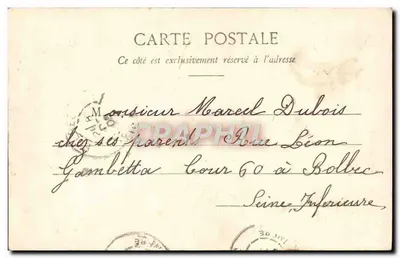 CARTE POSTALE
Ce côté est exclusivement réservé à l'adresse
Monsieur Marcel Dubois
chez ses parents Rue Léon
Gambetta Cour 60 à Bolbec
Seine Inferieure